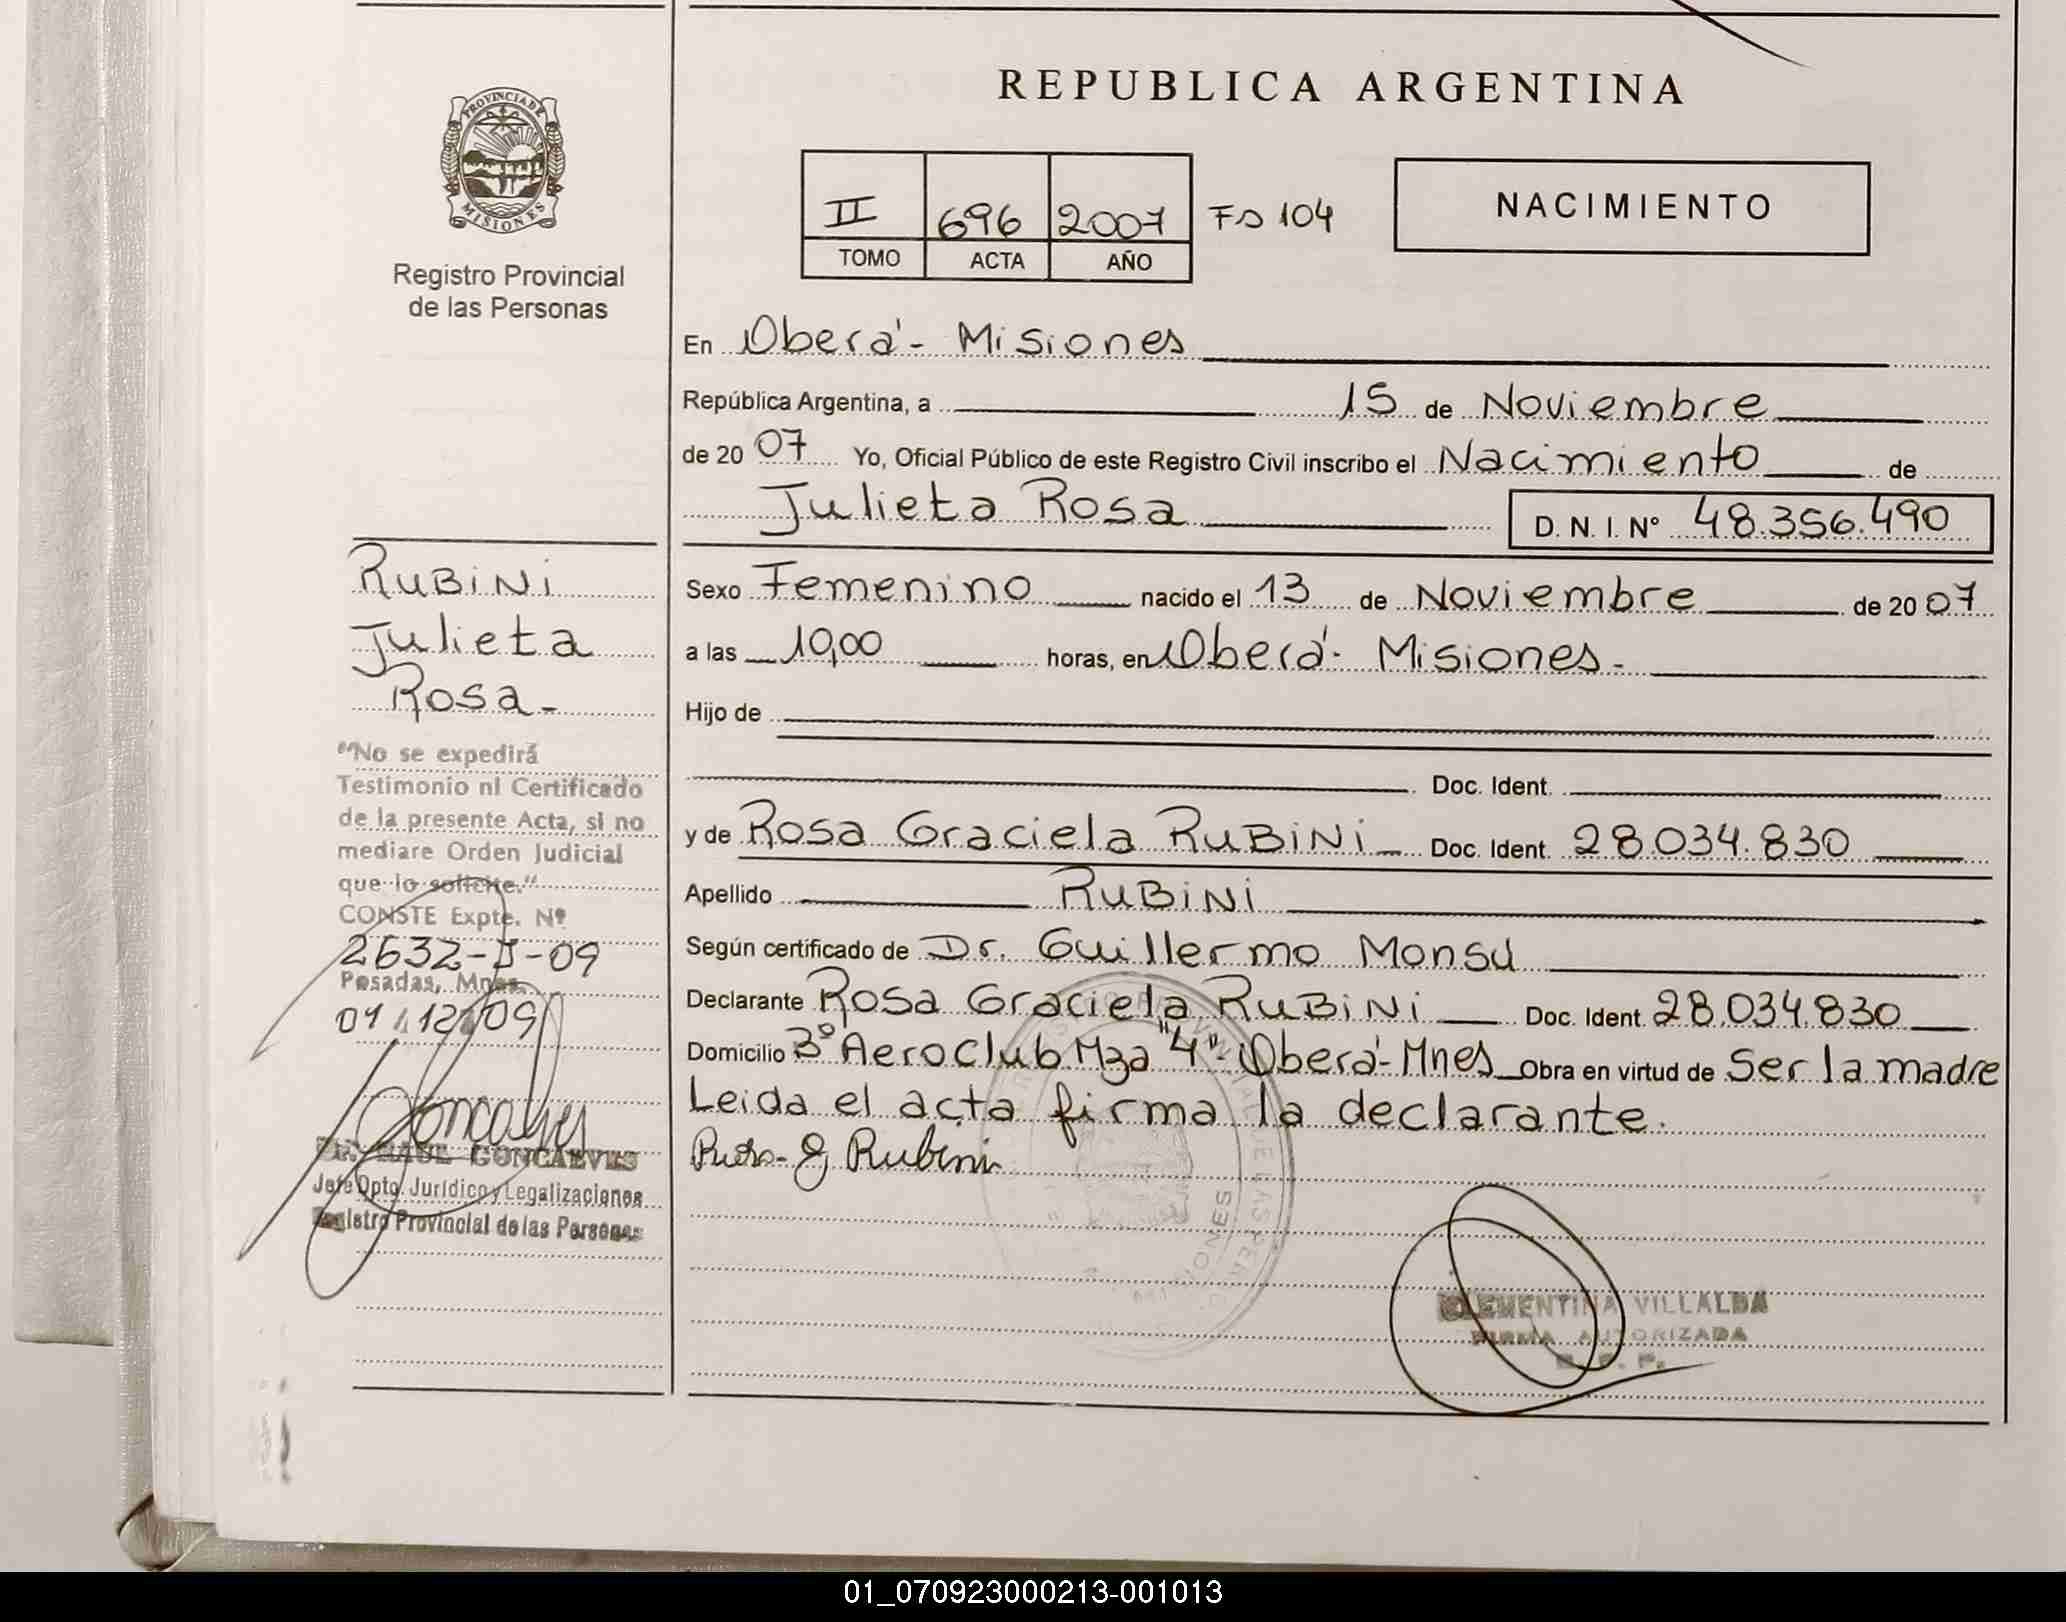 REPUBLICA ARGENTINA
PROVINCIA DE
MISIONES
Registro Provincial
de las Personas
II 696 2007 Fo 104
TOMO ACTA AÑO
NACIMIENTO
En Oberá - Misiones
República Argentina, a 15 de Noviembre
de 2007 Yo, Oficial Público de este Registro Civil inscribo el Nacimiento de
Julieta Rosa D. N. I. Nº 48.356.490
Sexo Femenino nacido el 13 de Noviembre de 2007
a las 10,00 horas, en Oberá - Misiones -
Hijo de
Doc. Ident.
y de Rosa Graciela RUBiNi Doc. Ident. 28.034.830
Apellido RUBiNi
Según certificado de Dr. Guillermo Monsu
Declarante Rosa Graciela RUBiNi Doc. Ident. 28.034.830
Domicilio 3º Aero Club Mza "4" - Oberá - Mnes Obra en virtud de Ser la madre
Leida el acta firma la declarante.
Rubini
CLEMENTINA VILLALBA
FIRMA AUTORIZADA
R. P. P.
RUBiNi
Julieta
Rosa -
"No se expedirá
Testimonio ni Certificado
de la presente Acta, si no
mediare Orden Judicial
que lo solicite."
CONSTE Expte. Nº
2632-J-09
Posadas, Mnes.
01/12/09
Goncalves
Dr. RAUL GONCALVES
Jefe Dpto. Jurídico y Legalizaciones
Registro Provincial de las Personas
MISIONES
01_070923000213-001013